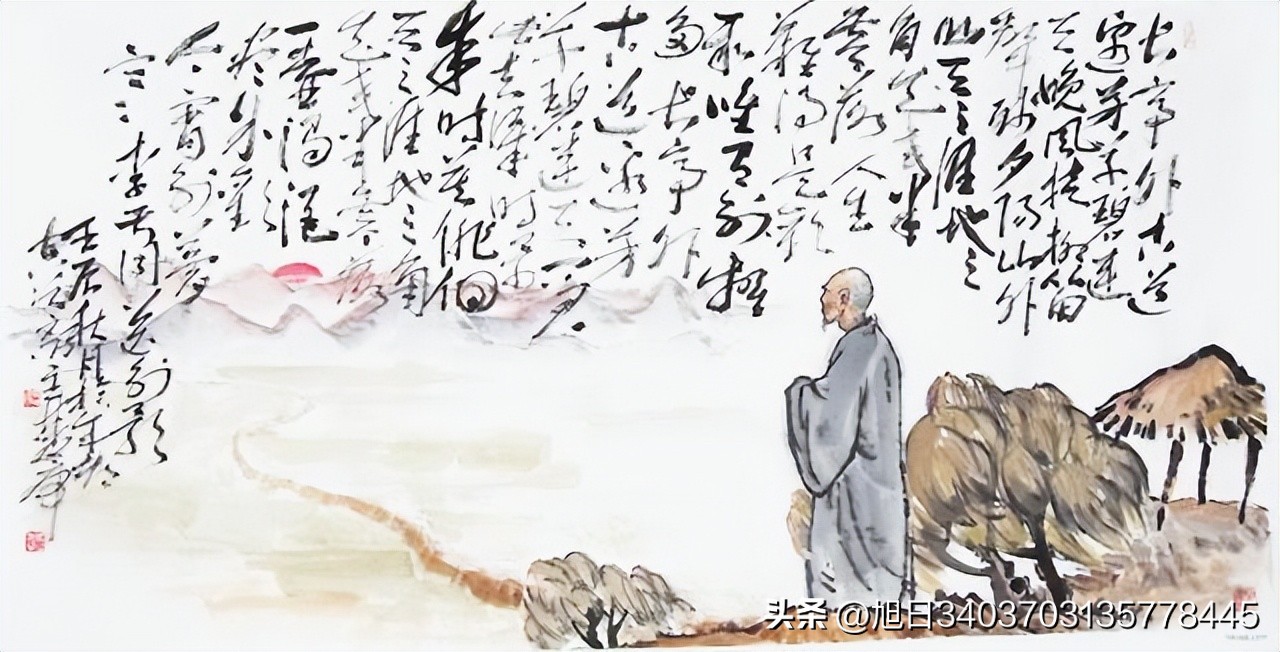 长亭外古道
边芳草碧连
天晚风拂柳笛
声残夕阳山外
山天之涯地之
角知交半
零落人生
难得是欢
聚唯有别离
多长亭外
古道边芳
草碧连天问君
此去几时还
来时莫徘徊
天之涯地之角
知交半零落
一壶浊酒
尽余欢
今宵别梦
寒李叔同送别歌
壬辰秋月
头条 @旭日3403703135778445